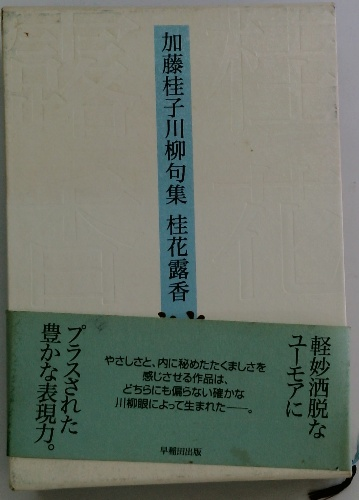 加藤桂子川柳句集 桂花露香
軽妙洒脱な
ユーモアに
プラスされた
豊かな表現力。
やさしさと、内に秘めたたくましさを
感じさせる作品は、
どちらにも偏らない確かな
川柳眼によって生まれた――。
早稲田出版